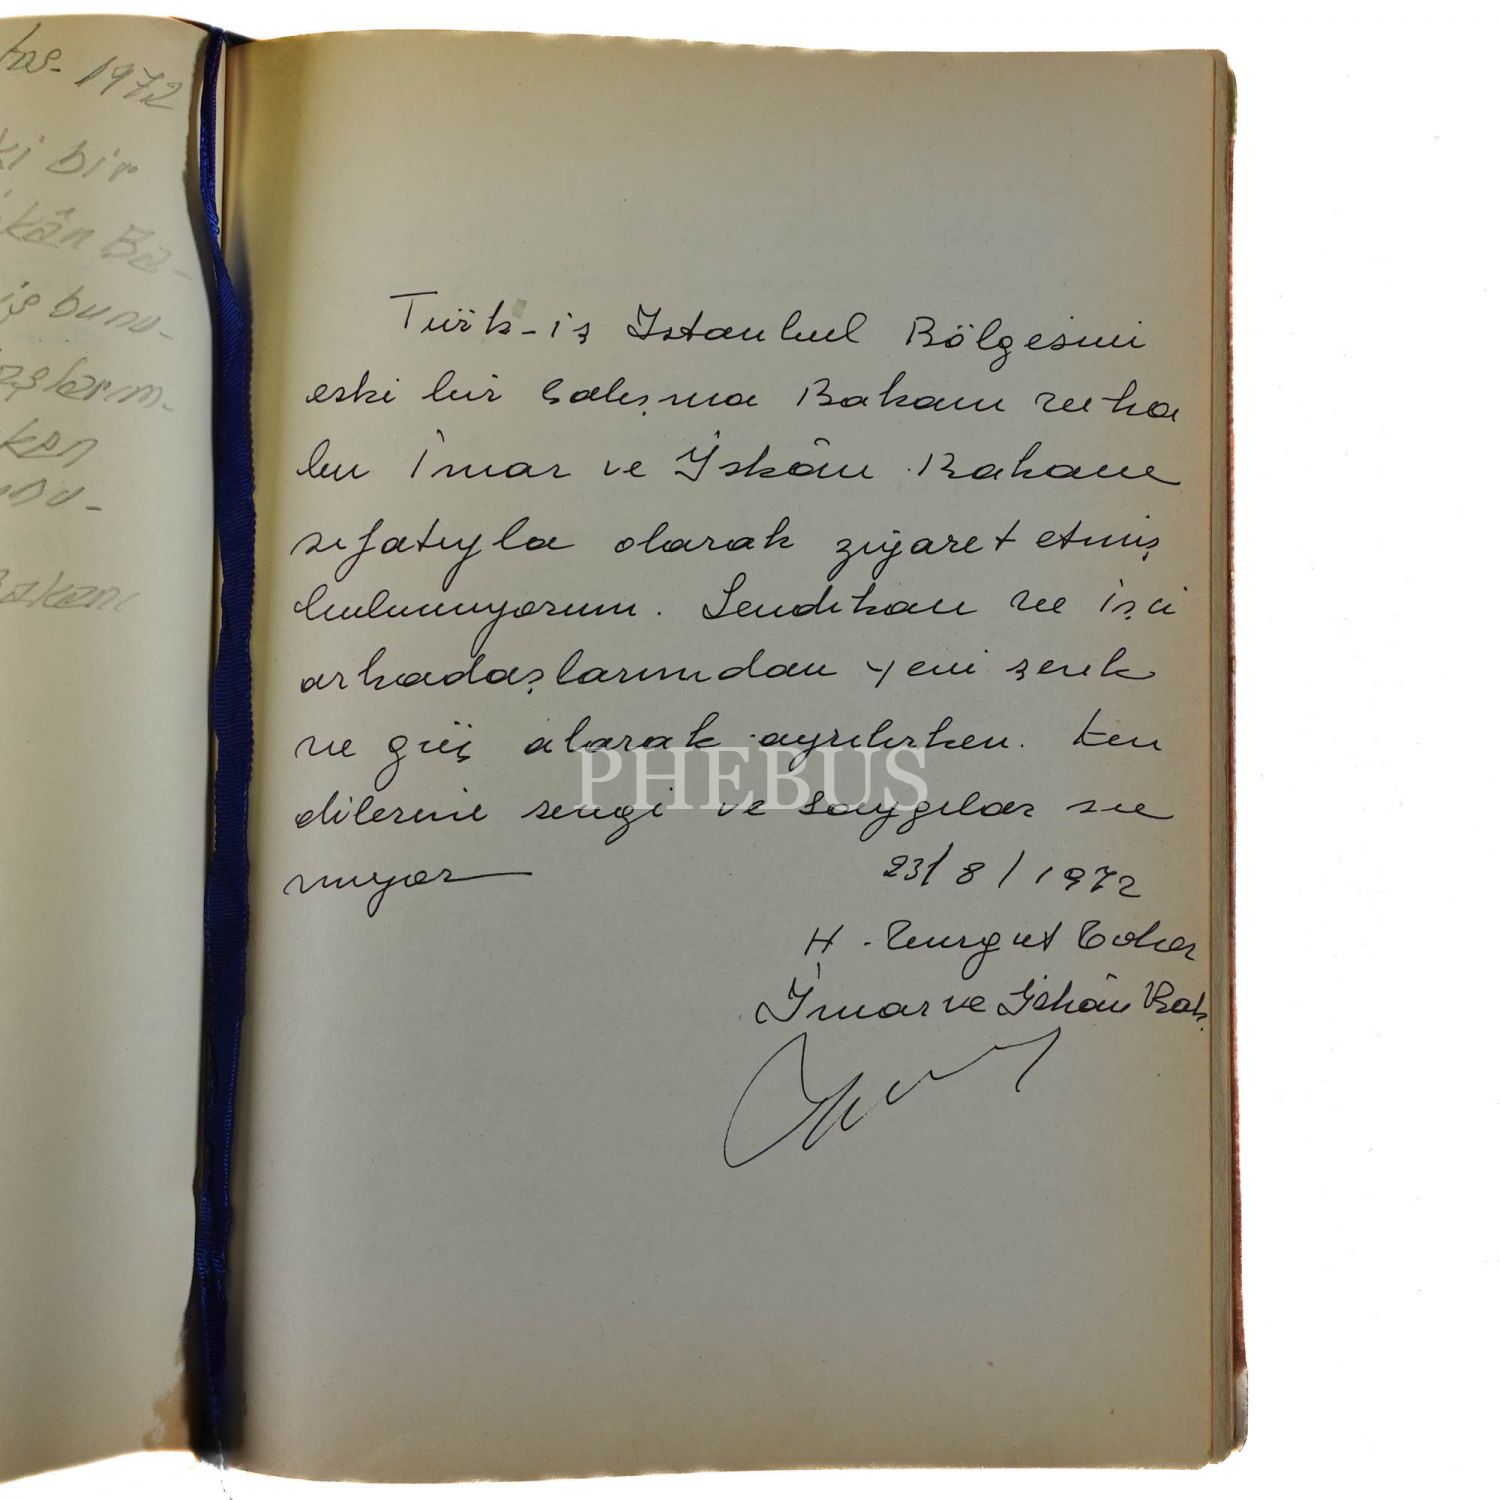 tos- 1972
ki bir
kân Ba-
iş bunu-
aşlarım-
ken
unu-
Bakanı
Türk-iş İstanbul Bölgesini
eski bir Çalışma Bakanı ve
bu İmar ve İskân Bakanı
sıfatıyla olarak ziyaret etmiş
bulunuyorum. Sendikacı ve işçi
arkadaşlarımdan yeni şevk
ve güç alarak ayrılırken. Ken
dilerine sevgi ve saygılar su
nuyor
23/8/1972
H. Turgut Toker
İmar ve İskân Bak.
PHEBUS